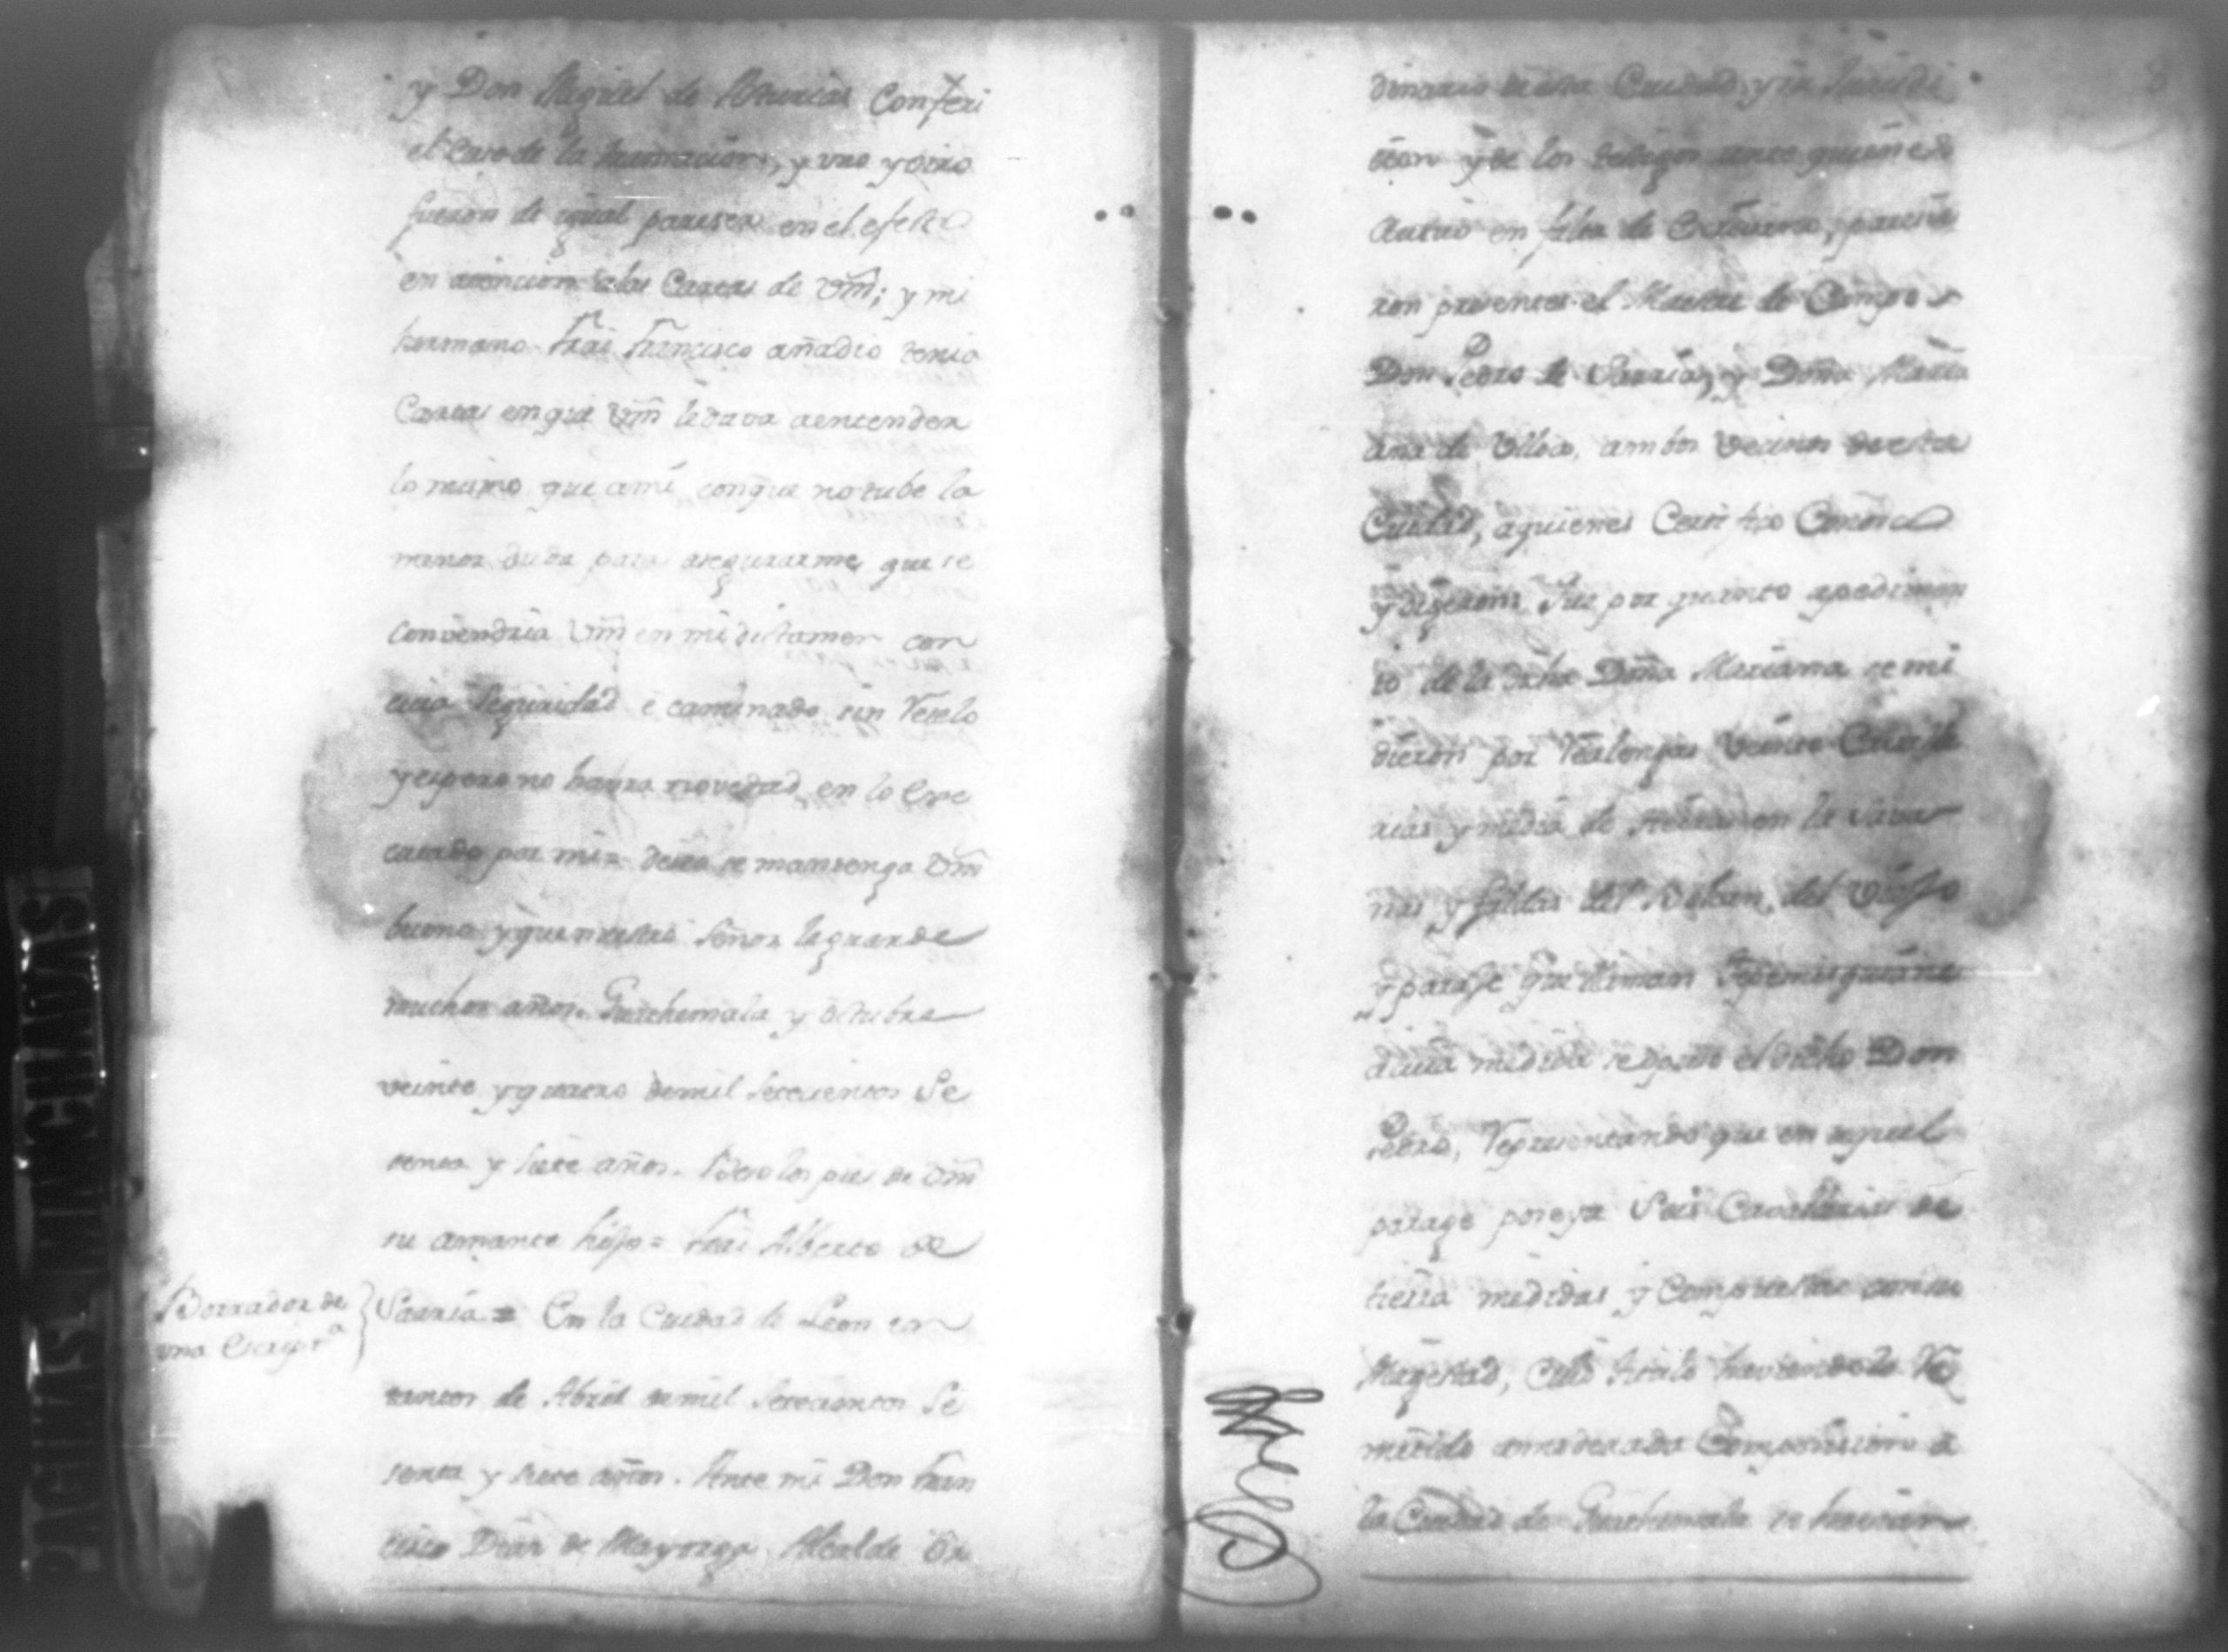 y Don Miguel de Asturias Conferi
el Caso de la transacion, y uno y otro
fueron de igual pareser en el efecto
en atencion a las Cartas de Vm̃; y mi
hermano Frai Francisco añadio tenia
Cartas en que Vm̃ le dava a entender
lo mismo que a mi, con que no tube la
menor duda para asegurarme, que se
convendria Vm̃ en mi dictamen con
cuia seguridad e caminado sin Reselo
y espero no havra novedad en lo Exe
cutado por mi = deseo se mantenga Vm̃
bueno y que nuestro Señor le guarde
muchos años. Guathemala y octubre
veinte y quatro de mil setecientos Se
tenta y siete años. Beso los pies de Vm̃
su amante hijo = Frai Alberto de
Borrador de
una Escript.ª
Sarria = En la Ciudad de Leon en
tantos de Abril de mil setecientos Se
tenta y siete años. Ante mi Don Fran
cisco Diaz de Mayorga Alcalde Or
dinario de esta Ciudad y su Jurisdi
cion y de los testigos ante quienes
Actuo en falta de Escrivano, parecie
ron presentes el Maestre de Campo
Don Pedro de Sarria, y Doña Mari
ana de Ulloa, ambos Vecinos de esta
Ciudad, a quienes Certifico Conosco
y dixeron: Que por quanto a pedimen
to de la dicha Doña Mariana se mi
dieron por Realengas Veinte Cavalle
rias y media de tierras en la Sava
nas y faldas del Volcan, del Viejo
y paraje que llaman
a cuia medida se opuso el dicho Don
Pedro, Representando que en aquel
parage poseya Seis Cavallerias de
tierra medidas y Compuestas con su
Magestad, cuio titulo haviendolo Re
mitido a moderada Composicion a
la Ciudad de Guathemala se havian